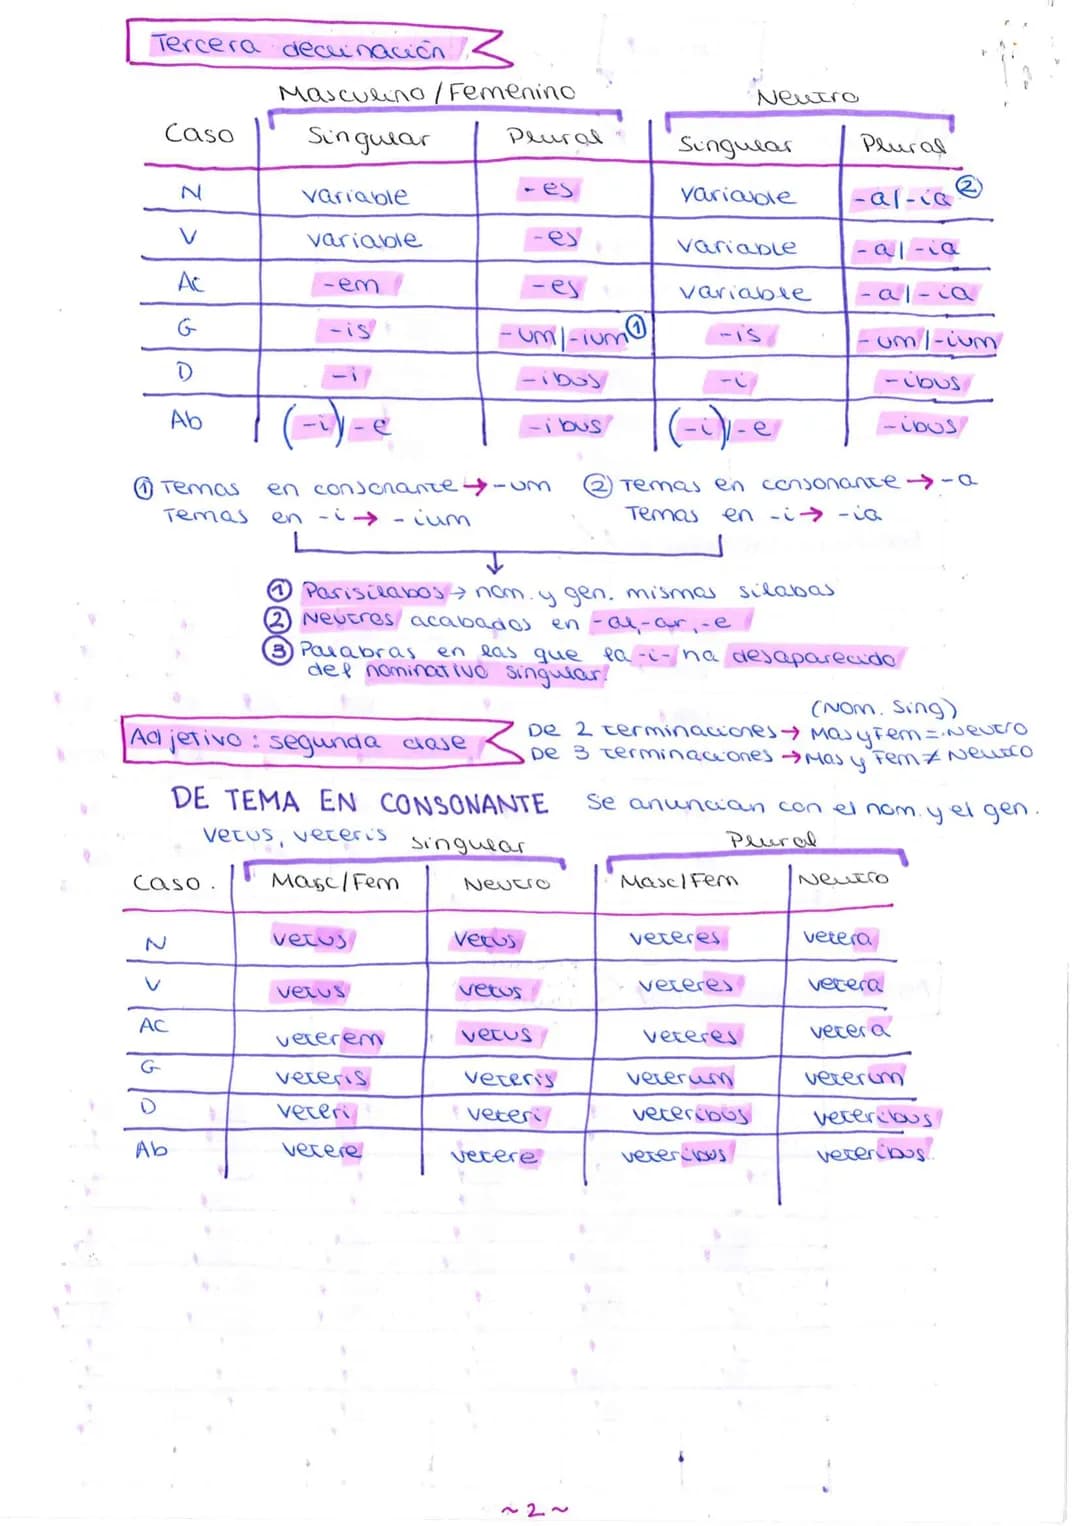 Tercera declinación
Masculino / Femenino Neutro
Caso Singular Plural Singular Plural
N variable -es variable -a/-ia ②
V variable -es variable -a/-ia
Ac -em -es variable -a/-ia
G -is -um/-ium ① -is -um/-ium
D -i -ibus -i -ibus
Ab (-i)/-e -ibus (-i)/-e -ibus
① Temas en consonante → -um ② Temas en consonante → -a
Temas en -i → -ium Temas en -i → -ia
① Parisílabos → nom. y gen. mismas sílabas
② Neutros acabados en -al, -ar, -e
③ Palabras en las que la -i- ha desaparecido
del nominativo singular.
(Nom. Sing)
Adjetivo: segunda clase De 2 terminaciones → Mas y Fem = Neutro
De 3 terminaciones → Mas y Fem ≠ Neutro
DE TEMA EN CONSONANTE Se anuncian con el nom. y el gen.
Vetus, veteris singular Plural
Caso. Masc/Fem Neutro Masc/Fem Neutro
N vetus vetus veteres vetera
V vetus vetus veteres vetera
AC veterem vetus veteres vetera
G veteris veteris veterum veterum
D veteri veteri veteribus veteribus
Ab vetere vetere veteribus veteribus.
~2~